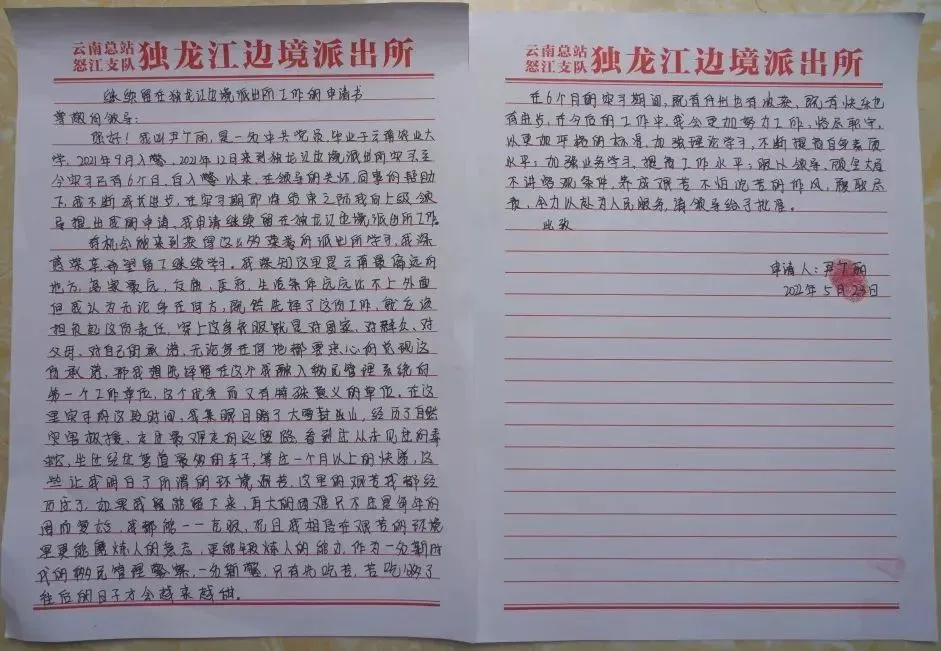 云南总站
怒江支队 独龙江边境派出所
继续留在独龙江边境派出所工作的申请书
尊敬的领导:
您好!我叫尹丽,是一名中共党员,毕业于云南农业大
学,2021年9月入警,2021年12月来到独龙江边境派出所实习至
今实习已有6个月,自入警以来,在领导的关怀,同事的帮助
下,我不断成长进步,在实习期即将结束之际我向上级领
导提出我的申请,我申请继续留在独龙江边境派出所工作。
有机会能来到获得这么多荣誉的派出所学习,我深
感荣幸希望留下继续学习。我深知这里是云南最偏远的
地方,离家最远,交通,医疗,生活条件远远比不上外面
但我认为无论身在何方,既然选择了这份工作,就应该
担负起这份责任,穿上这身警服就是对国家,对群众,对
父母,对自己的承诺,无论身在何地都要忠心的兑现这
份承诺,那我想选择留在这个我融入移民管理系统的
第一个工作单位,这个优秀而又有特殊意义的单位。在这
里实习的这段时间,我亲眼目睹了大雪封山,经历了自然
灾害救援,走过最难走的巡逻路,看到过从未见过的毒
蛇,坐过经过弯道最多的车子,等过一个月以上的快递,这
些让我明白了所谓的环境艰苦,这里的艰苦我都经
历过了,如果我能留下来,再大的困难只不过是每年的
周而复始,我都能一一克服,而且我相信在艰苦的环境
里更能磨炼人的意志,更能锻炼人的能力,作为一名新时
代的移民管理警察,一名新警,只有先吃苦,苦吃够了
往后的日子才会越来越甜。
云南总站
怒江支队 独龙江边境派出所
在6个月的实习期间,既有付出也有收获,既有快乐也
有进步,在今后的工作中,我会更加努力工作,恪尽职守,
以更加严格的标准,加强理论学习,不断提高自身素质
水平;加强业务学习,提高工作水平;服从领导,顾全大局
不讲客观条件,养成艰苦不怕吃苦的作风,履职尽
责,全力以赴为人民服务,请领导给予批准。
此致
申请人:尹丽
2022年5月23日